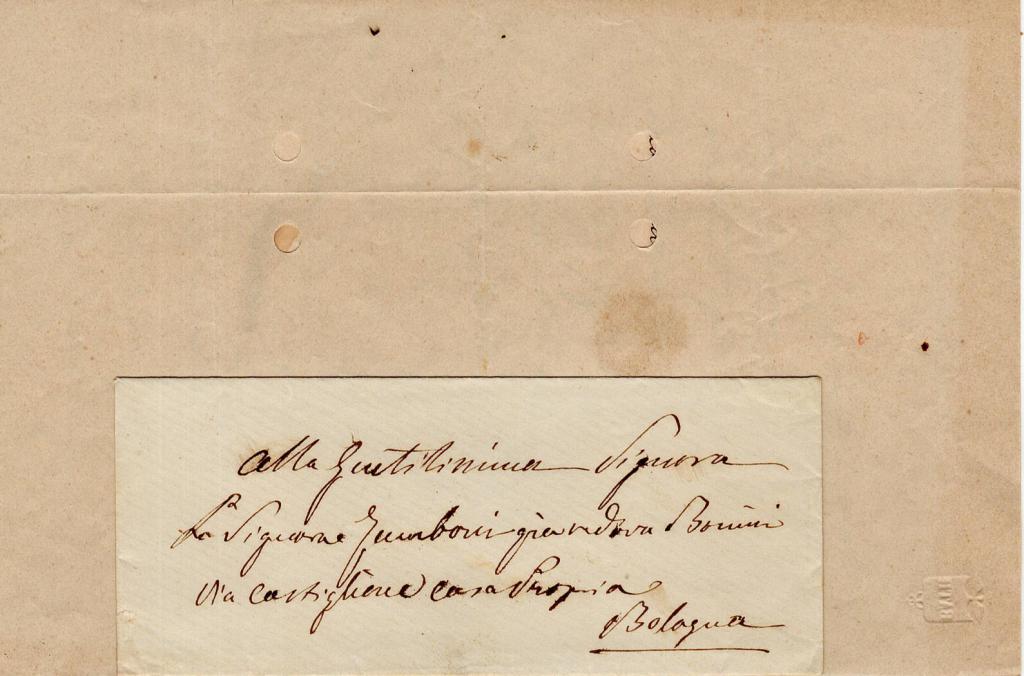 Alla Gentilissima Signora
La Signora Zamboni già vedova Bonini
Via Castiglione casa Propria
Bologna
BATH